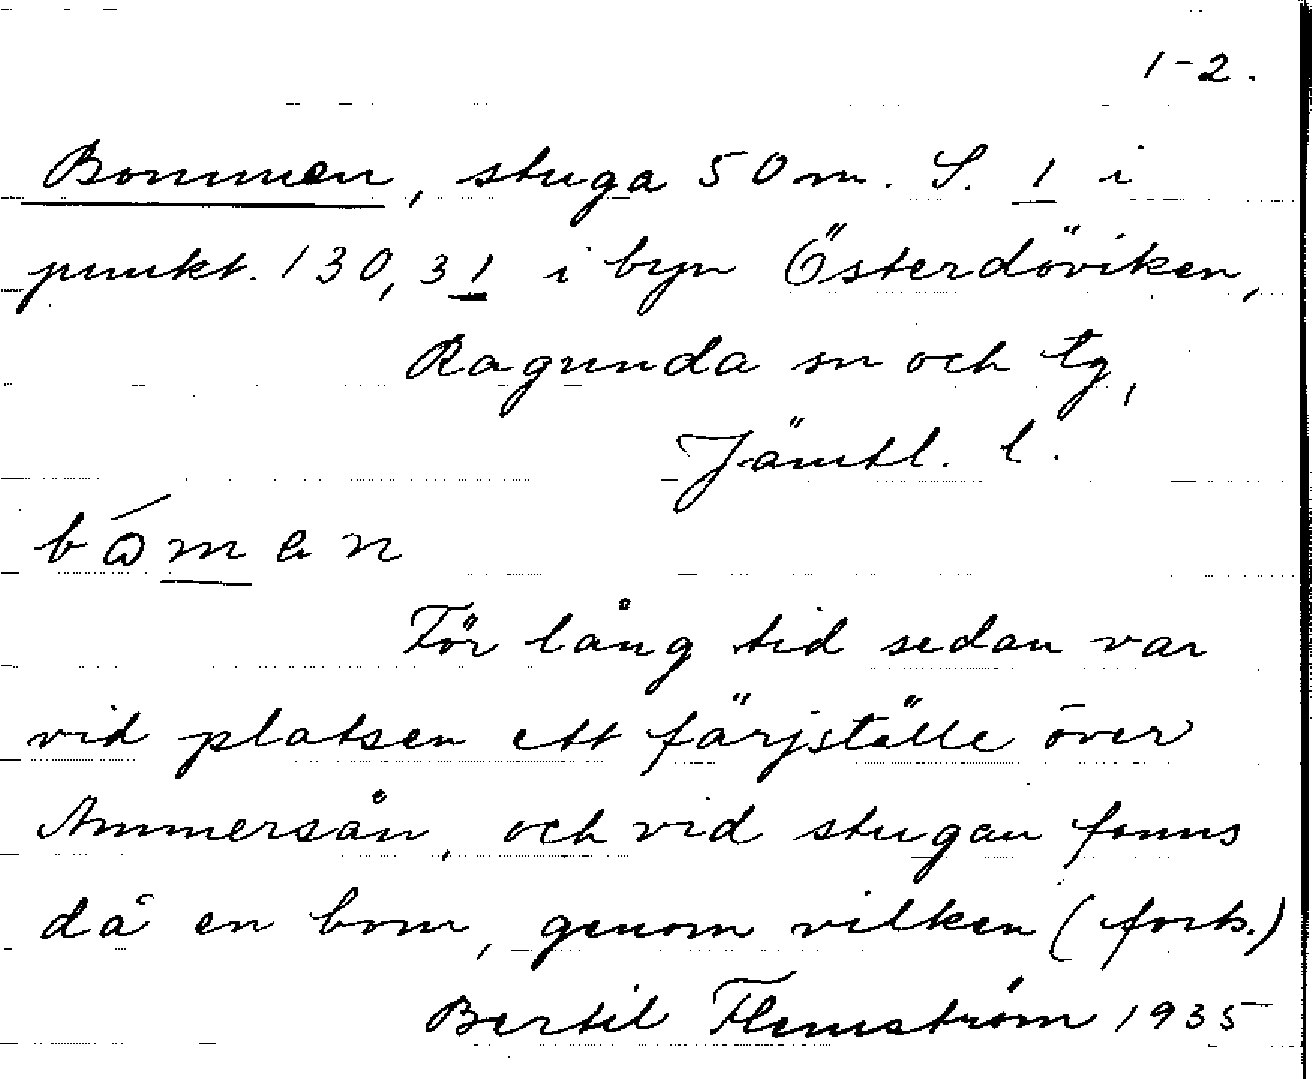 1-2.
Bommen, stuga 50 m. S. 1 i
punkt. 130,31 i byn Österdöviken,
Ragunda sn och tg,
Jämtl. l.
båman
För lång tid sedan var
vid platsen ett färjställe över
Ammersån, och vid stugan fanns
då en bom, genom vilken (forts.)
Bertil Flemström 1935